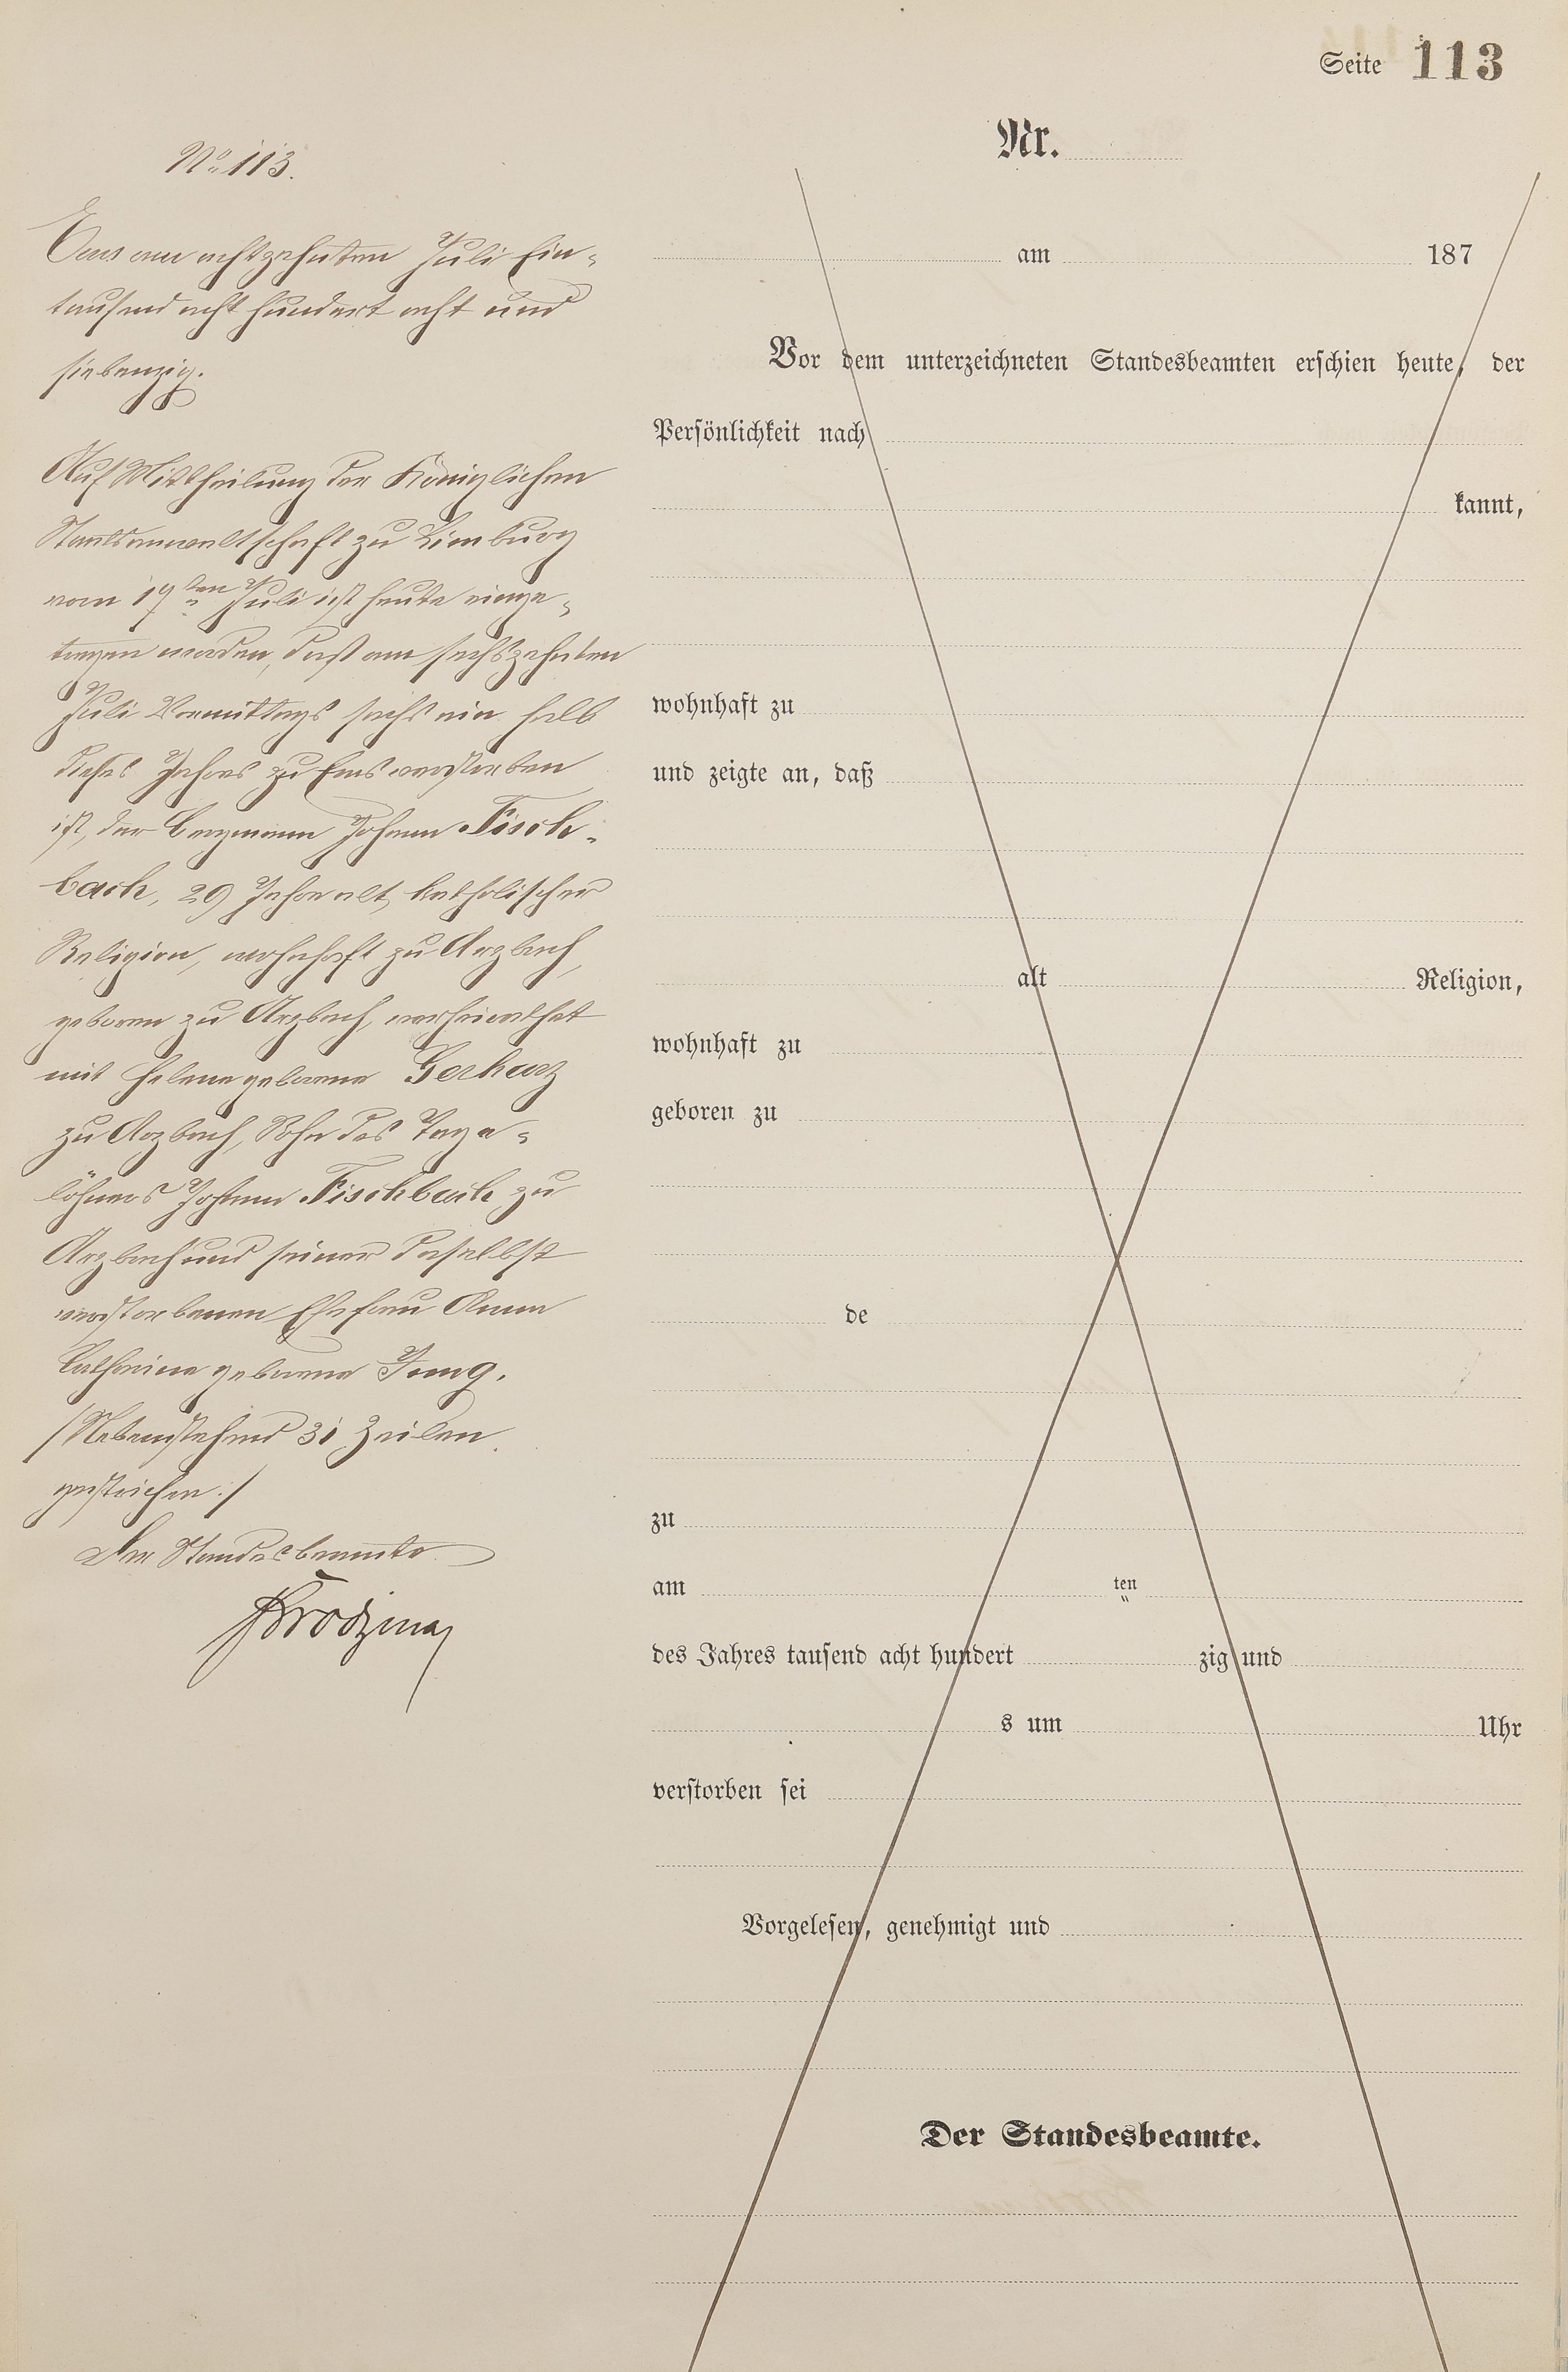 Seite 113
Nr.
No 113.
Ems am achtzehnten Juli Ein-
tausend acht hundert acht und
siebenzig.
Auf Mittheilung der Königlichen
Staatsanwaltschaft zu Limburg
vom 17ten Juli ist heute einge-
tragen worden, daß am sechszehnten
Juli Vormittags sechs ein halb
dieses Jahres zu Ems verstorben
ist, der Bergmann Johann Fisch-
bach, 29 Jahre alt, katholischer
Religion, wohnhaft zu Arzbach,
geboren zu Arzbach, verheirathet
mit Helene geborene Gerharz
zu Arzbach, Sohn des Tage-
löhners Johann Fischbach zu
Arzbach und seiner daselbst
verstorbenen Ehefrau Anna
Catharina geborene Jung.
/Nebenstehend 31 Zeilen
gestrichen./
Der Standesbeamte
am 187
Vor dem unterzeichneten Standesbeamten erschien heute, der
Persönlichkeit nach
kannt,
wohnhaft zu
und zeigte an, daß
alt Religion,
wohnhaft zu
geboren zu
de
zu
am ten
des Jahres tausend acht hundert zig und
s um Uhr
verstorben sei
Vorgelesen, genehmigt und
Der Standesbeamte.